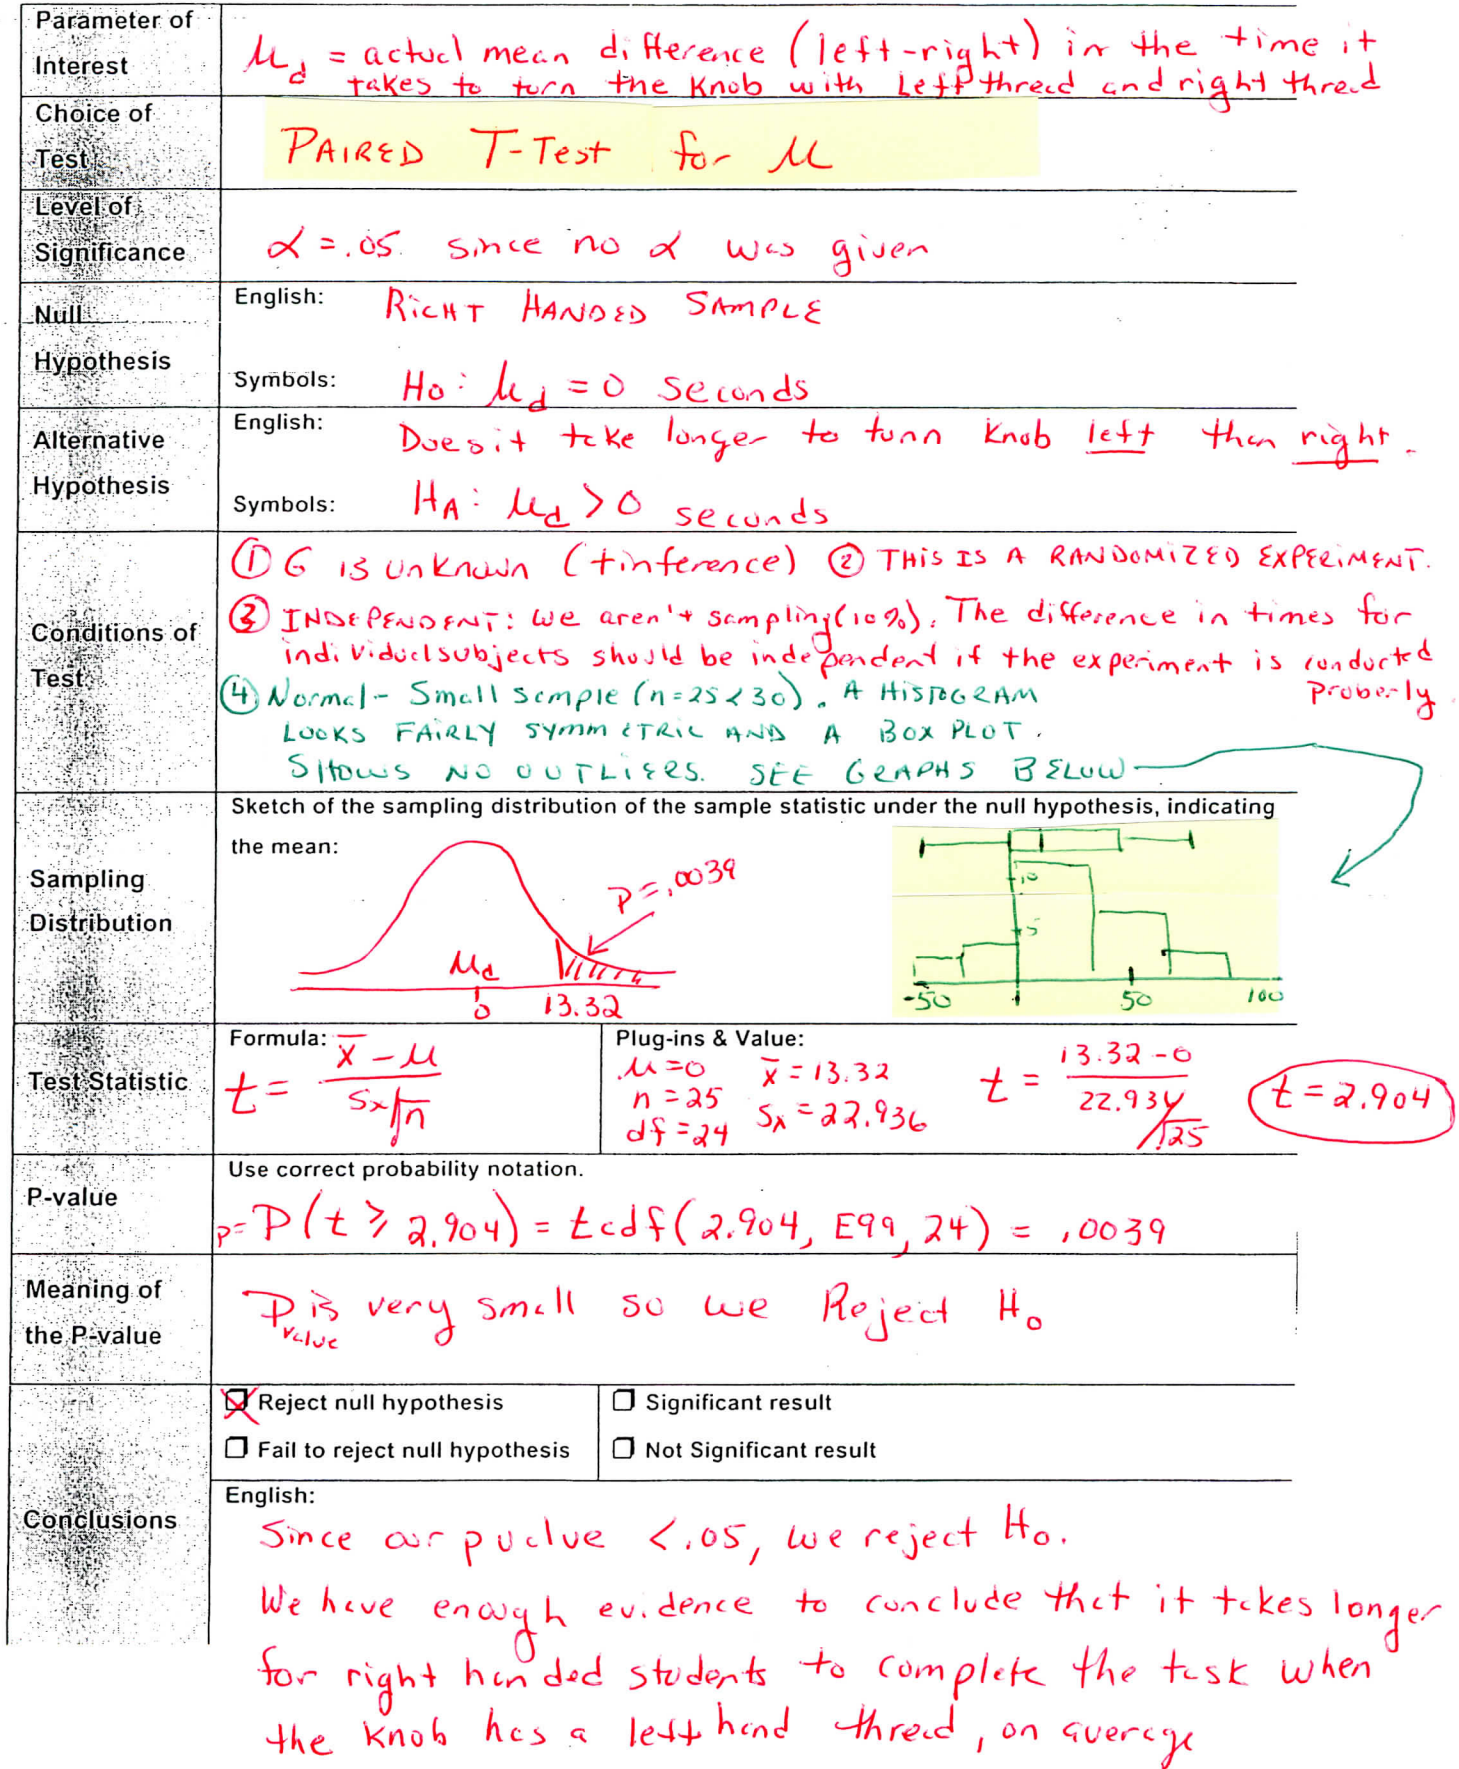 Parameter of
Interest
μd = actual mean difference (left-right) in the time it
takes to turn the knob with Left thread and right thread
Choice of
Test
PAIRED T-Test for μ
Level of
Significance
α = .05 since no α was given
Null
Hypothesis
English: RIGHT HANDED SAMPLE
Symbols: Ho: μd = 0 seconds
Alternative
Hypothesis
English: Does it take longer to turn knob left than right.
Symbols: HA: μd > 0 seconds
Conditions of
Test
① σ is unknown (t inference) ② THIS IS A RANDOMIZED EXPERIMENT.
③ INDEPENDENT: we aren't sampling (10%). The difference in times for
individual subjects should be independent if the experiment is conducted
proberly
④ Normal - Small sample (n=25<30). A HISTOGRAM
LOOKS FAIRLY SYMMETRIC AND A BOX PLOT.
SHOWS NO OUTLIERS. SEE GRAPHS BELOW
Sampling
Distribution
Sketch of the sampling distribution of the sample statistic under the null hypothesis, indicating
the mean:
P=.0039
μd
0 13.32
10
5
-50 50 100
Test Statistic
Formula:
t = x̄ - μ / sx/√n
Plug-ins & Value:
μ = 0 x̄ = 13.32
n = 25 Sx = 22.936
df = 24
t = 13.32 - 0 / 22.936/√25
t = 2.904
P-value
Use correct probability notation.
p= P(t ≥ 2.904) = tcdf(2.904, E99, 24) = .0039
Meaning of
the P-value
P value is very small so we Reject Ho
Conclusions
Reject null hypothesis
Fail to reject null hypothesis
Significant result
Not Significant result
English:
Since our pvalue < .05, we reject Ho.
We have enough evidence to conclude that it takes longer
for right handed students to complete the task when
the knob has a left hand thread, on average